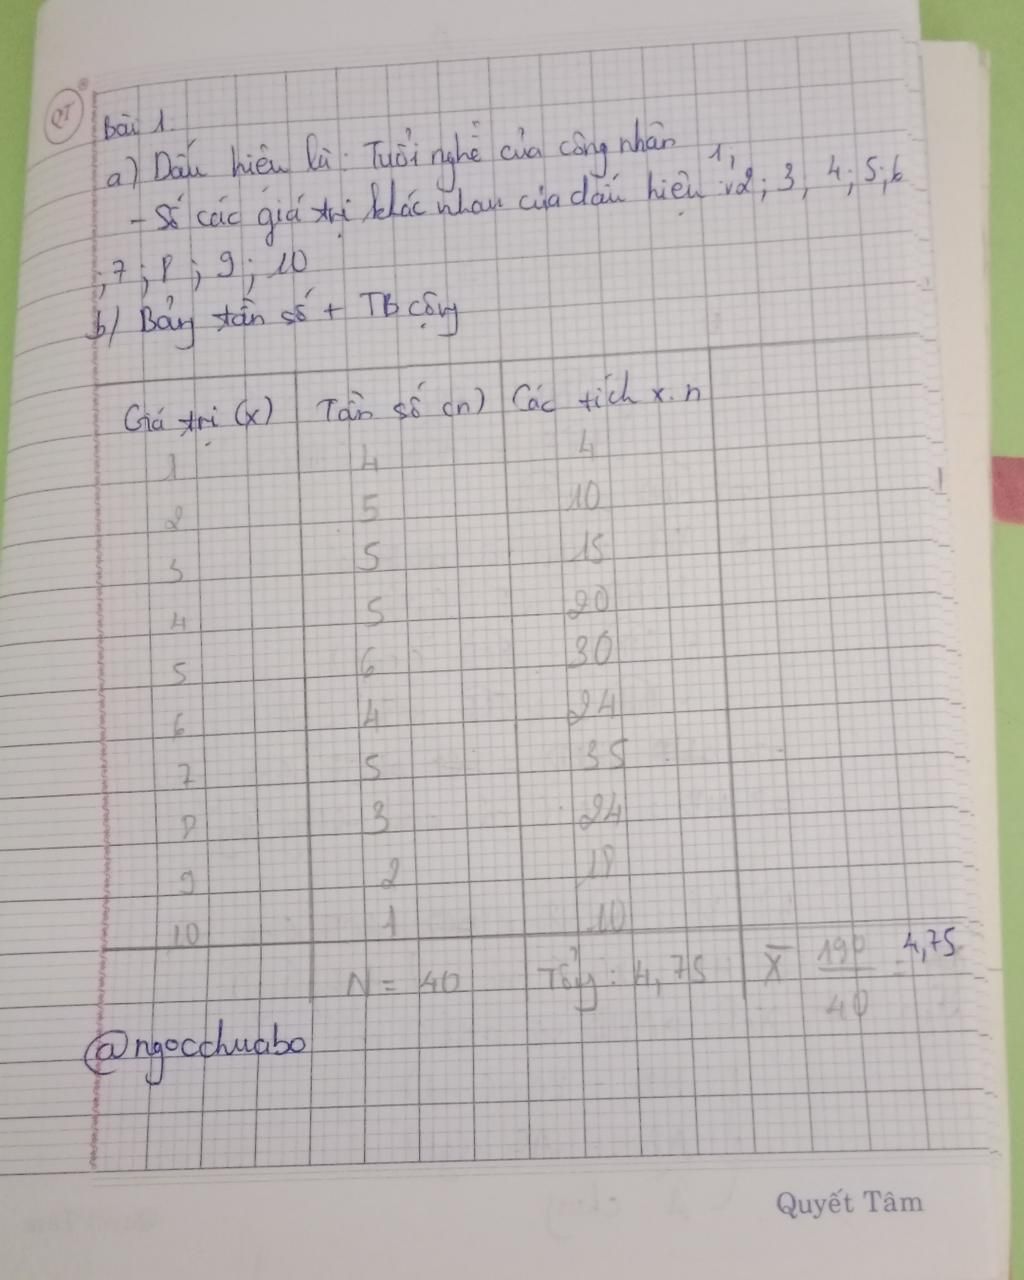 QT
Bài 1.
a) Dấu hiệu là: Tuổi nghề của công nhân
- Số các giá trị khác nhau của dấu hiệu: 1; 2; 3; 4; 5; 6
; 7; 8; 9; 10
b) Bảng tần số + TB cộng
Giá trị (x) Tần số (n) Các tích x.n
1 4 4
2 5 10
3 5 15
4 5 20
5 6 30
6 4 24
7 5 35
8 3 24
9 2 18
10 1 10
N = 40 Tổng: 4,75 X̄ 190/40 = 4,75
@ngocchuabo
Quyết Tâm